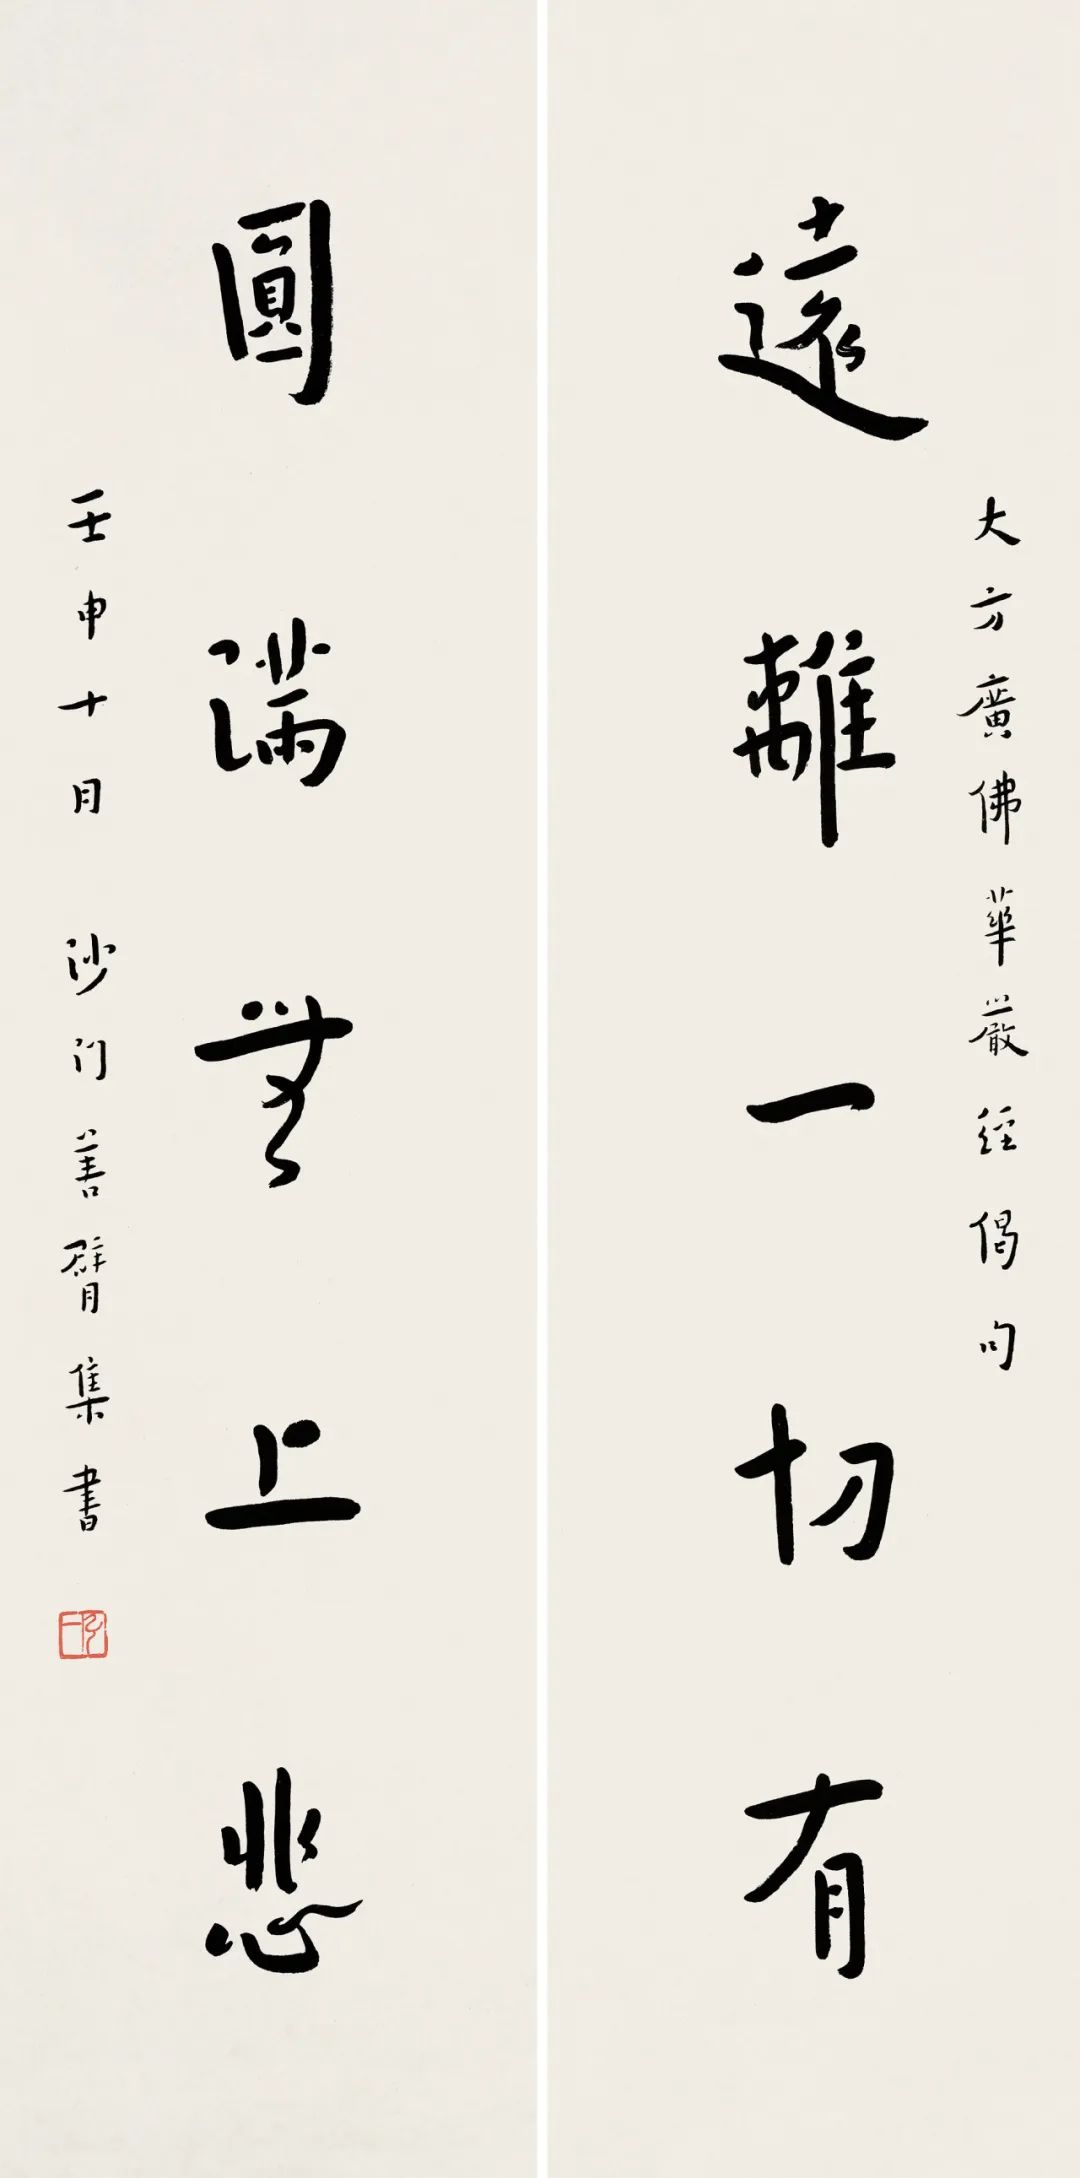 大方廣佛華嚴經偈句
遠離一切有
圓滿無上悲
壬申十月 沙门善臂集書